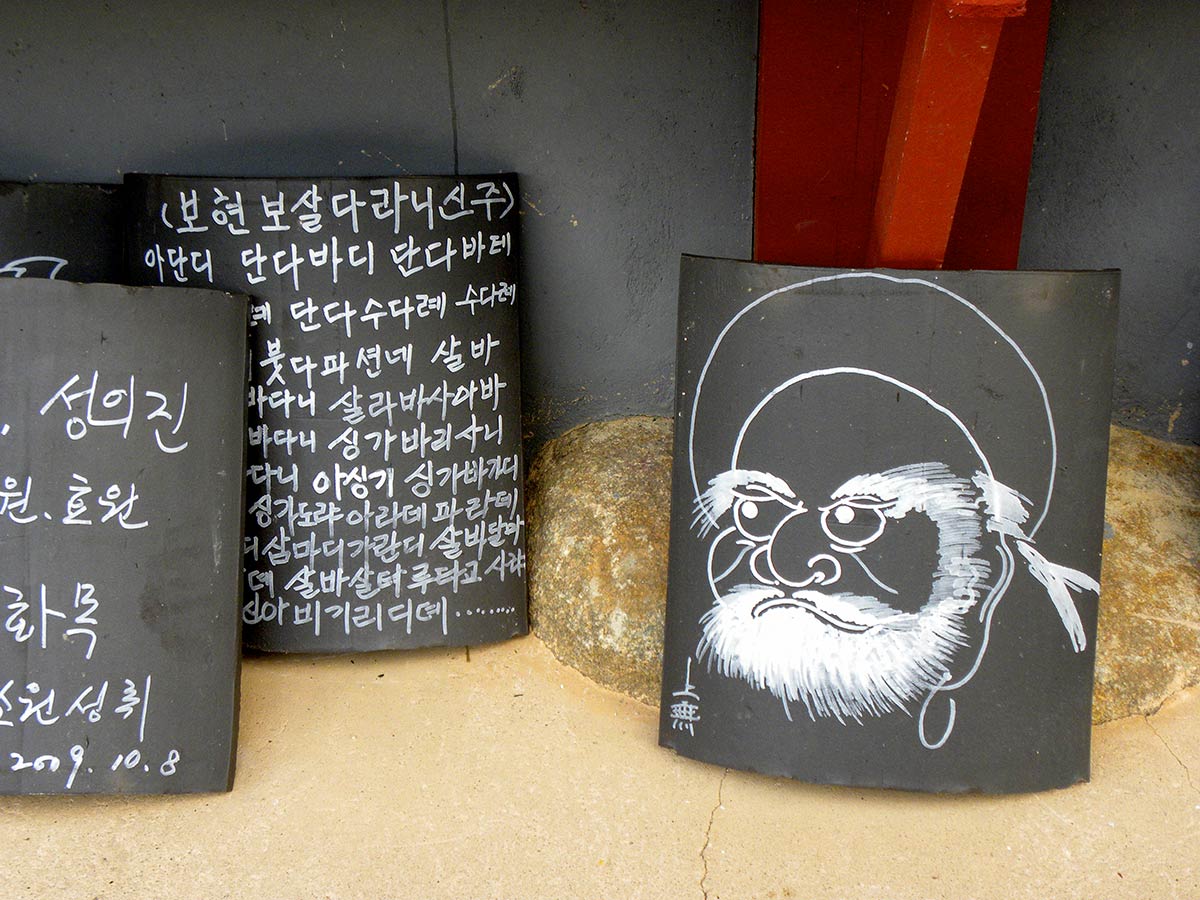 성의진
원.효완
화목
소원성취
2009.10.8
(보현보살다라니신주)
아단디 단다바디 단다바테
례 단다수다례 수다례
붓다파션네 살바
바다니 살라바사아바
바다니 싱가바리사니
다니 아싱기 싱가바가디
싱가도랴아라데 파라데
디삼마디가란디 살바달마
데 살바살타루타교사랴
신아비기리디데........
上
無